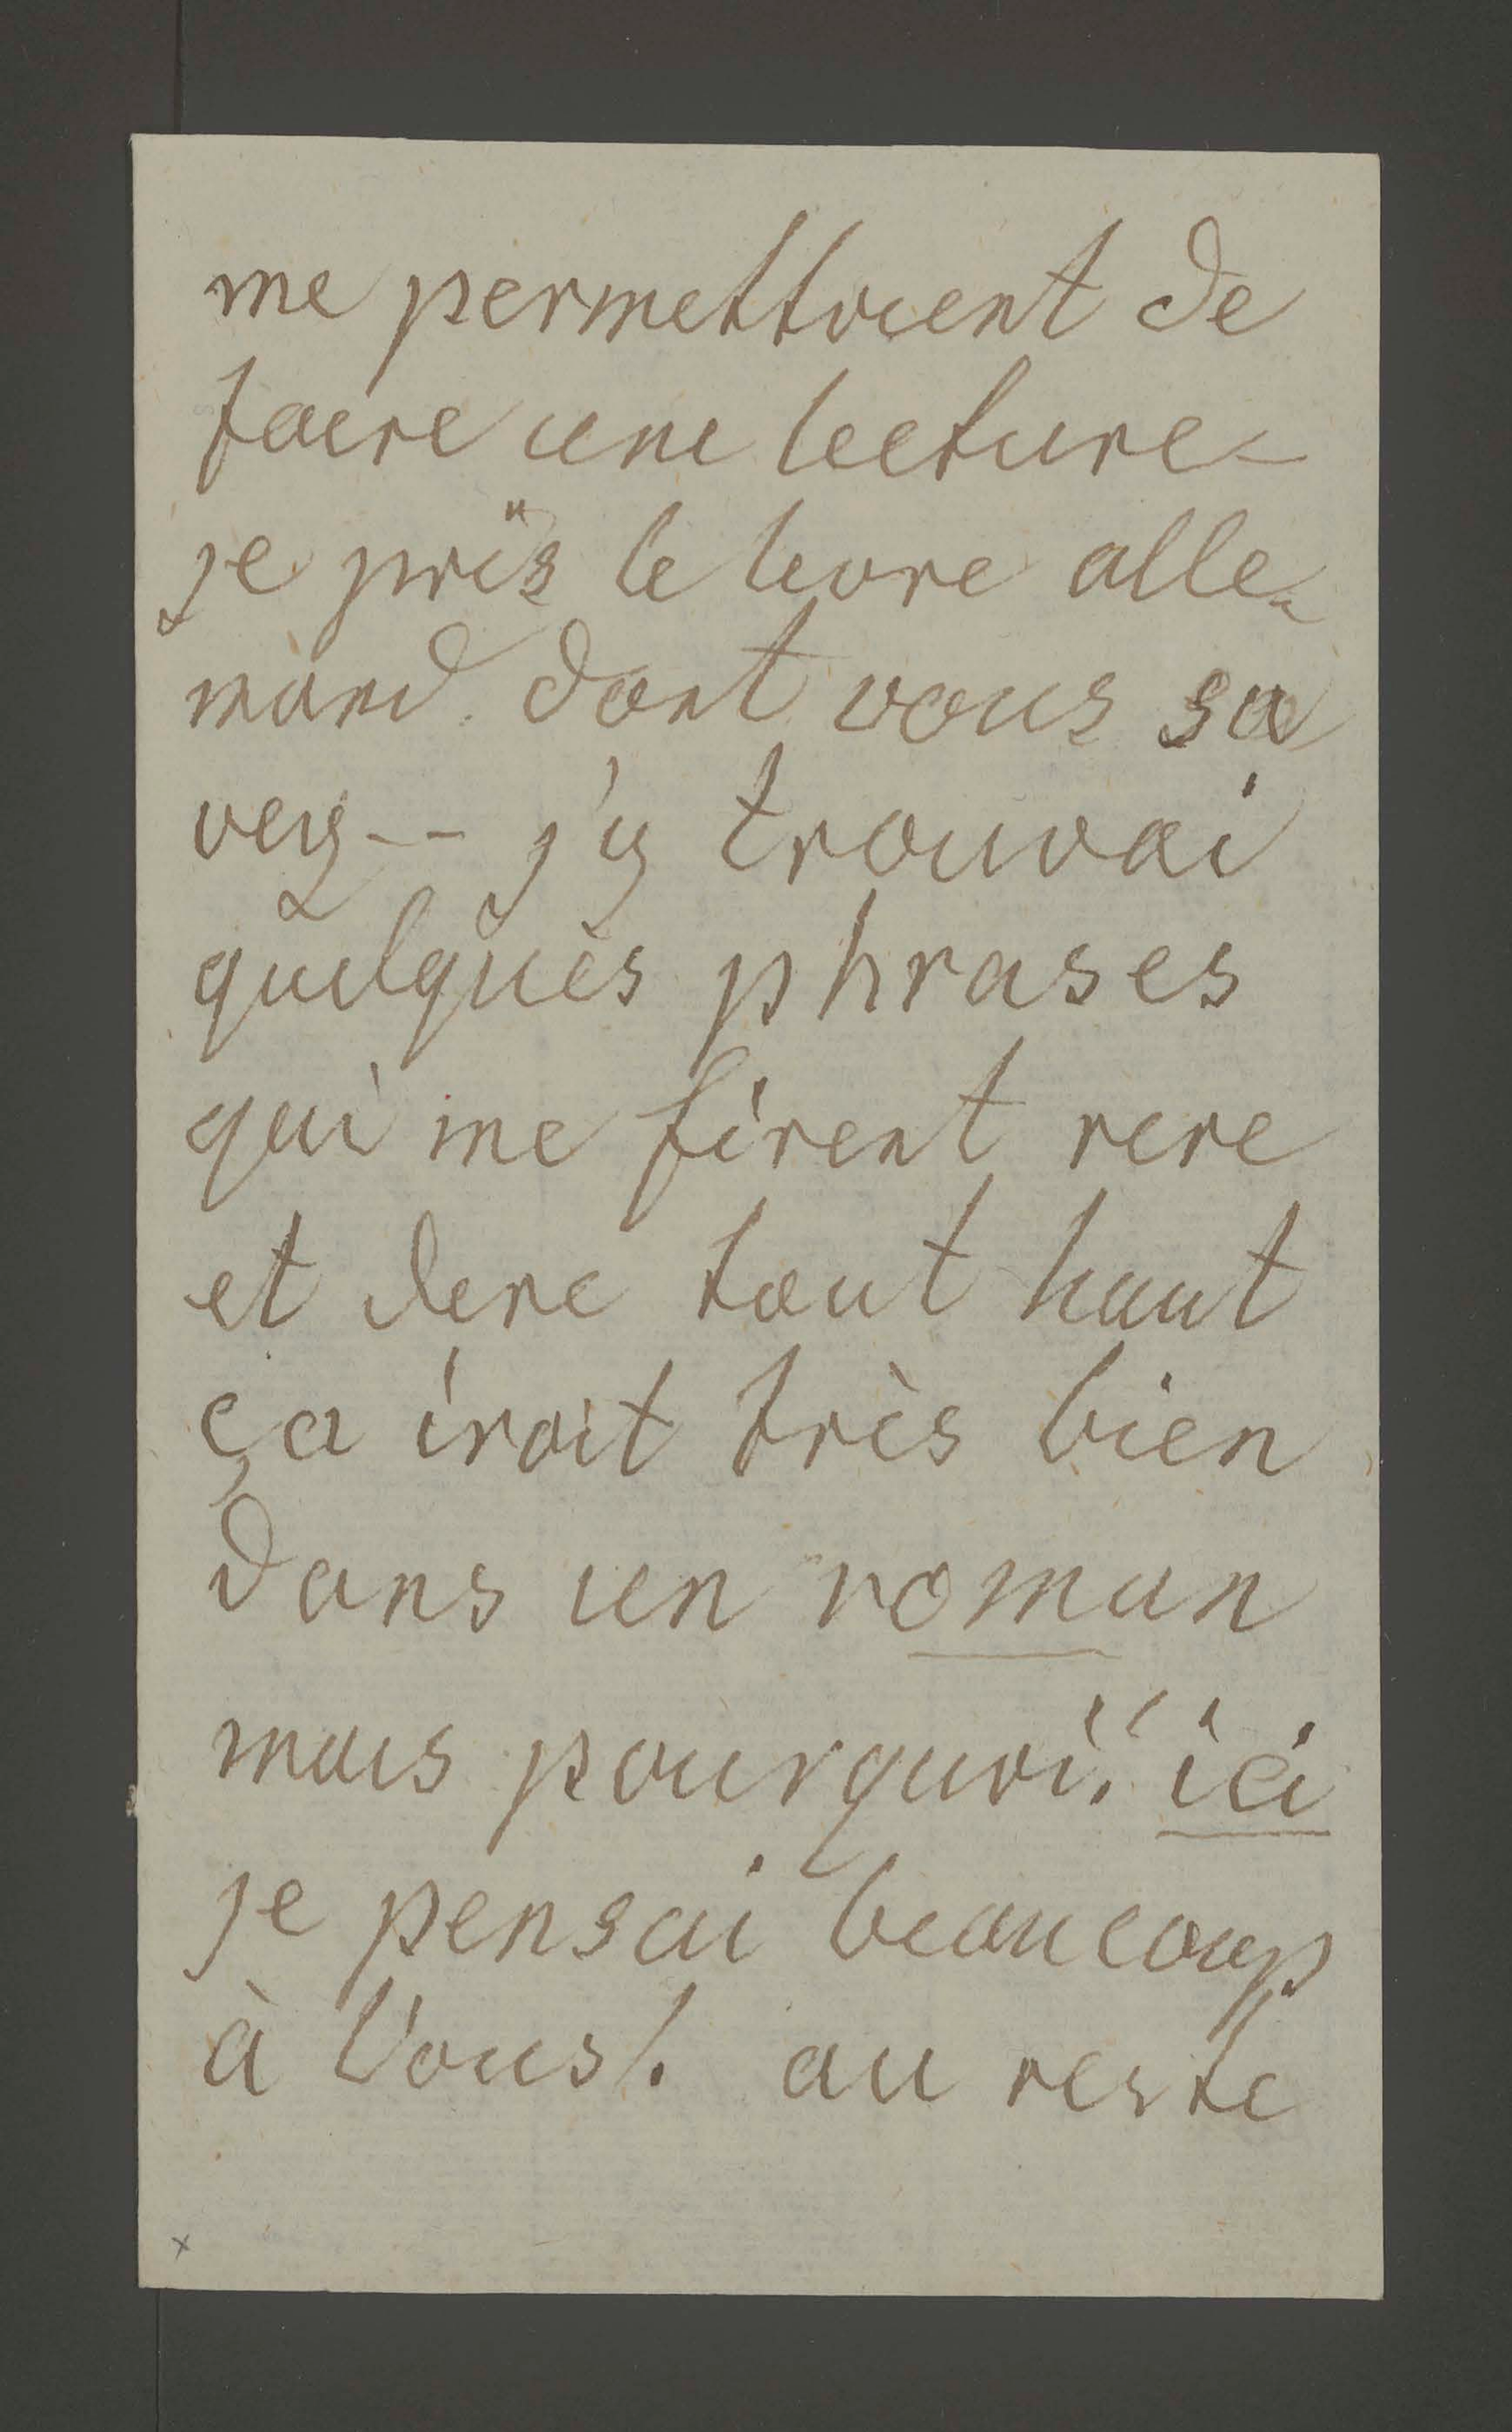 me permettoient de
faire une lecture –
je pris le livre alle-
mand dont vous sa
vez -- j'y trouvai
quelques phrases
qui me firent rire
et dire tout haut
ça iroit très bien
dans un roman
mais pourquoi. ici
je pensai beaucoup
à Vous!. au reste
x